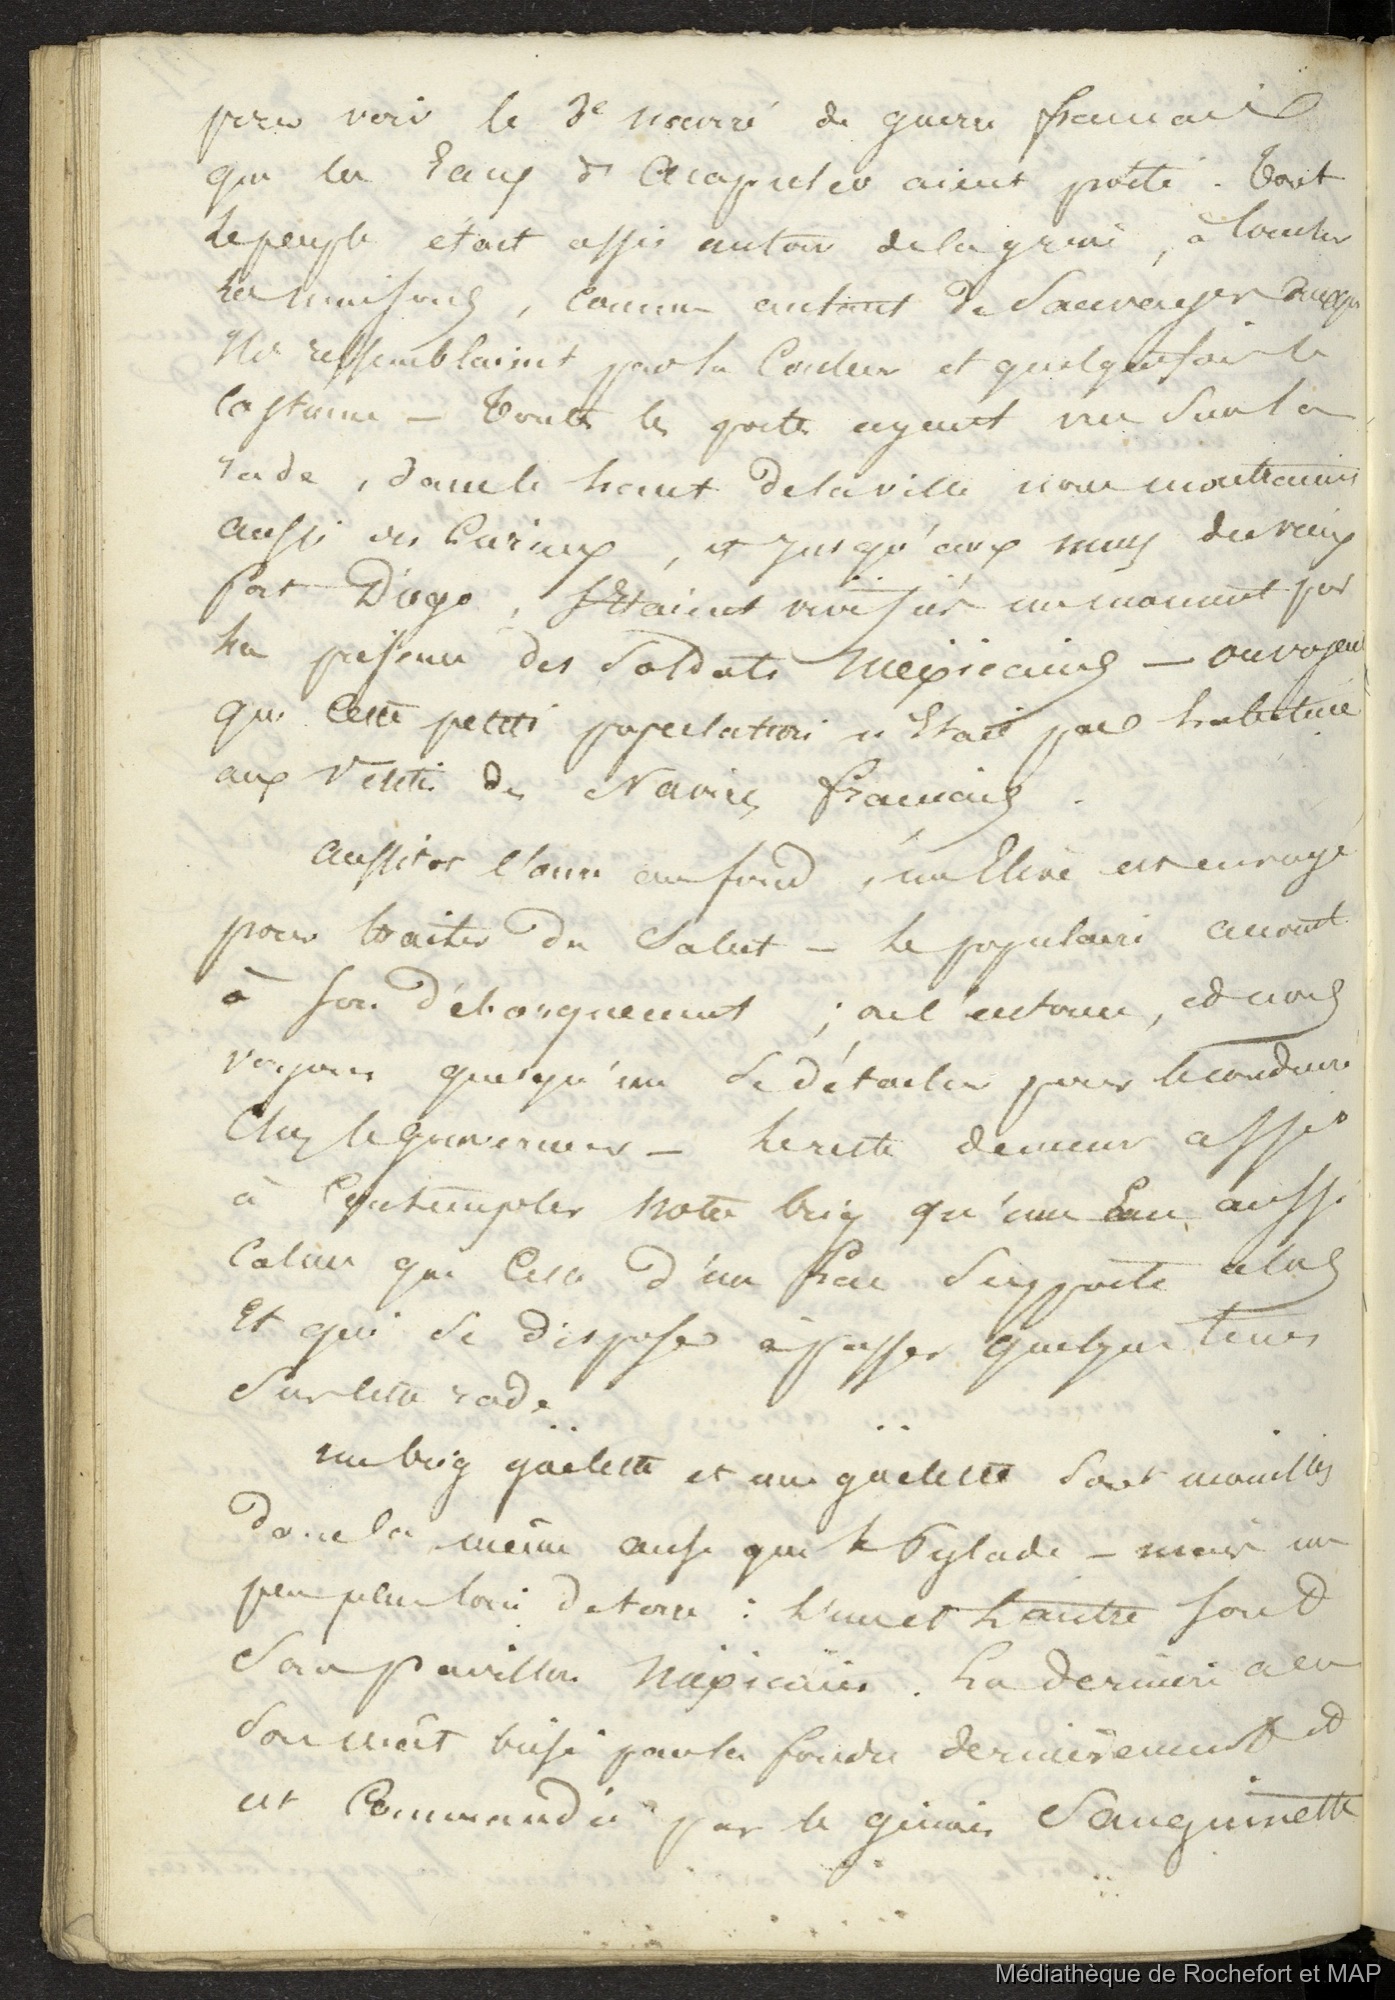 pour voir le 3e navire de guerre français
que les Eaux d'Acapulco aient porté. Tout
le peuple était assis autour de la grève, à
les maisons, comme autant de Sauvages auxquels
ils ressemblaient par la Couleur et quelquefois le
Costume — toutes les portes ayant vue sur la
rade, dans le haut de la ville nous montraient
aussi des Curieux, et jusqu'aux murs du vieux
fort Diégo, s'étaient vivifiés un moment par
la présence des Soldats Mexicains — on voyait
que Cette petite population n'était pas habituée
aux visites des Navires français.
aussitôt l'ancre au fond, un Elève est envoyé
pour traiter du Salut — le populaire accourt
à son débarquement ; on l'entoure, et nous
voyons quelqu'un se détacher pour le conduire
Chez le gouverneur — le reste demeure assis
à Contempler notre brig qu'une Eau aussi
Calme que Celle d'un Lac supporte alors
Et qui se dispose à passer quelque tems
sur cette rade
un brig goëlette et une goëlette sont mouillés
dans la même anse que le Pylade — mais un
peu plus loin de terre : l'un et l'autre sont
sous pavillon Mexicain. La dernière a eu
son mât brisé par la foudre dernièrement et
est Commandée par le génois Sanguinette
Médiathèque de Rochefort et MAP